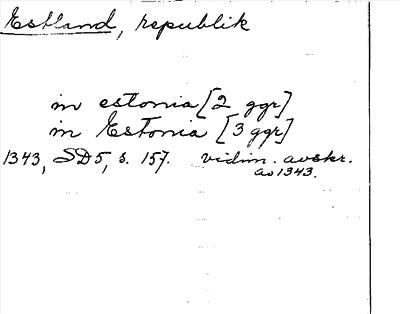 Estland, republik
in estonia [2 ggr]
in Estonia [3 ggr]
1343, SD5, s. 157. vidim. avskr.
av 1343.